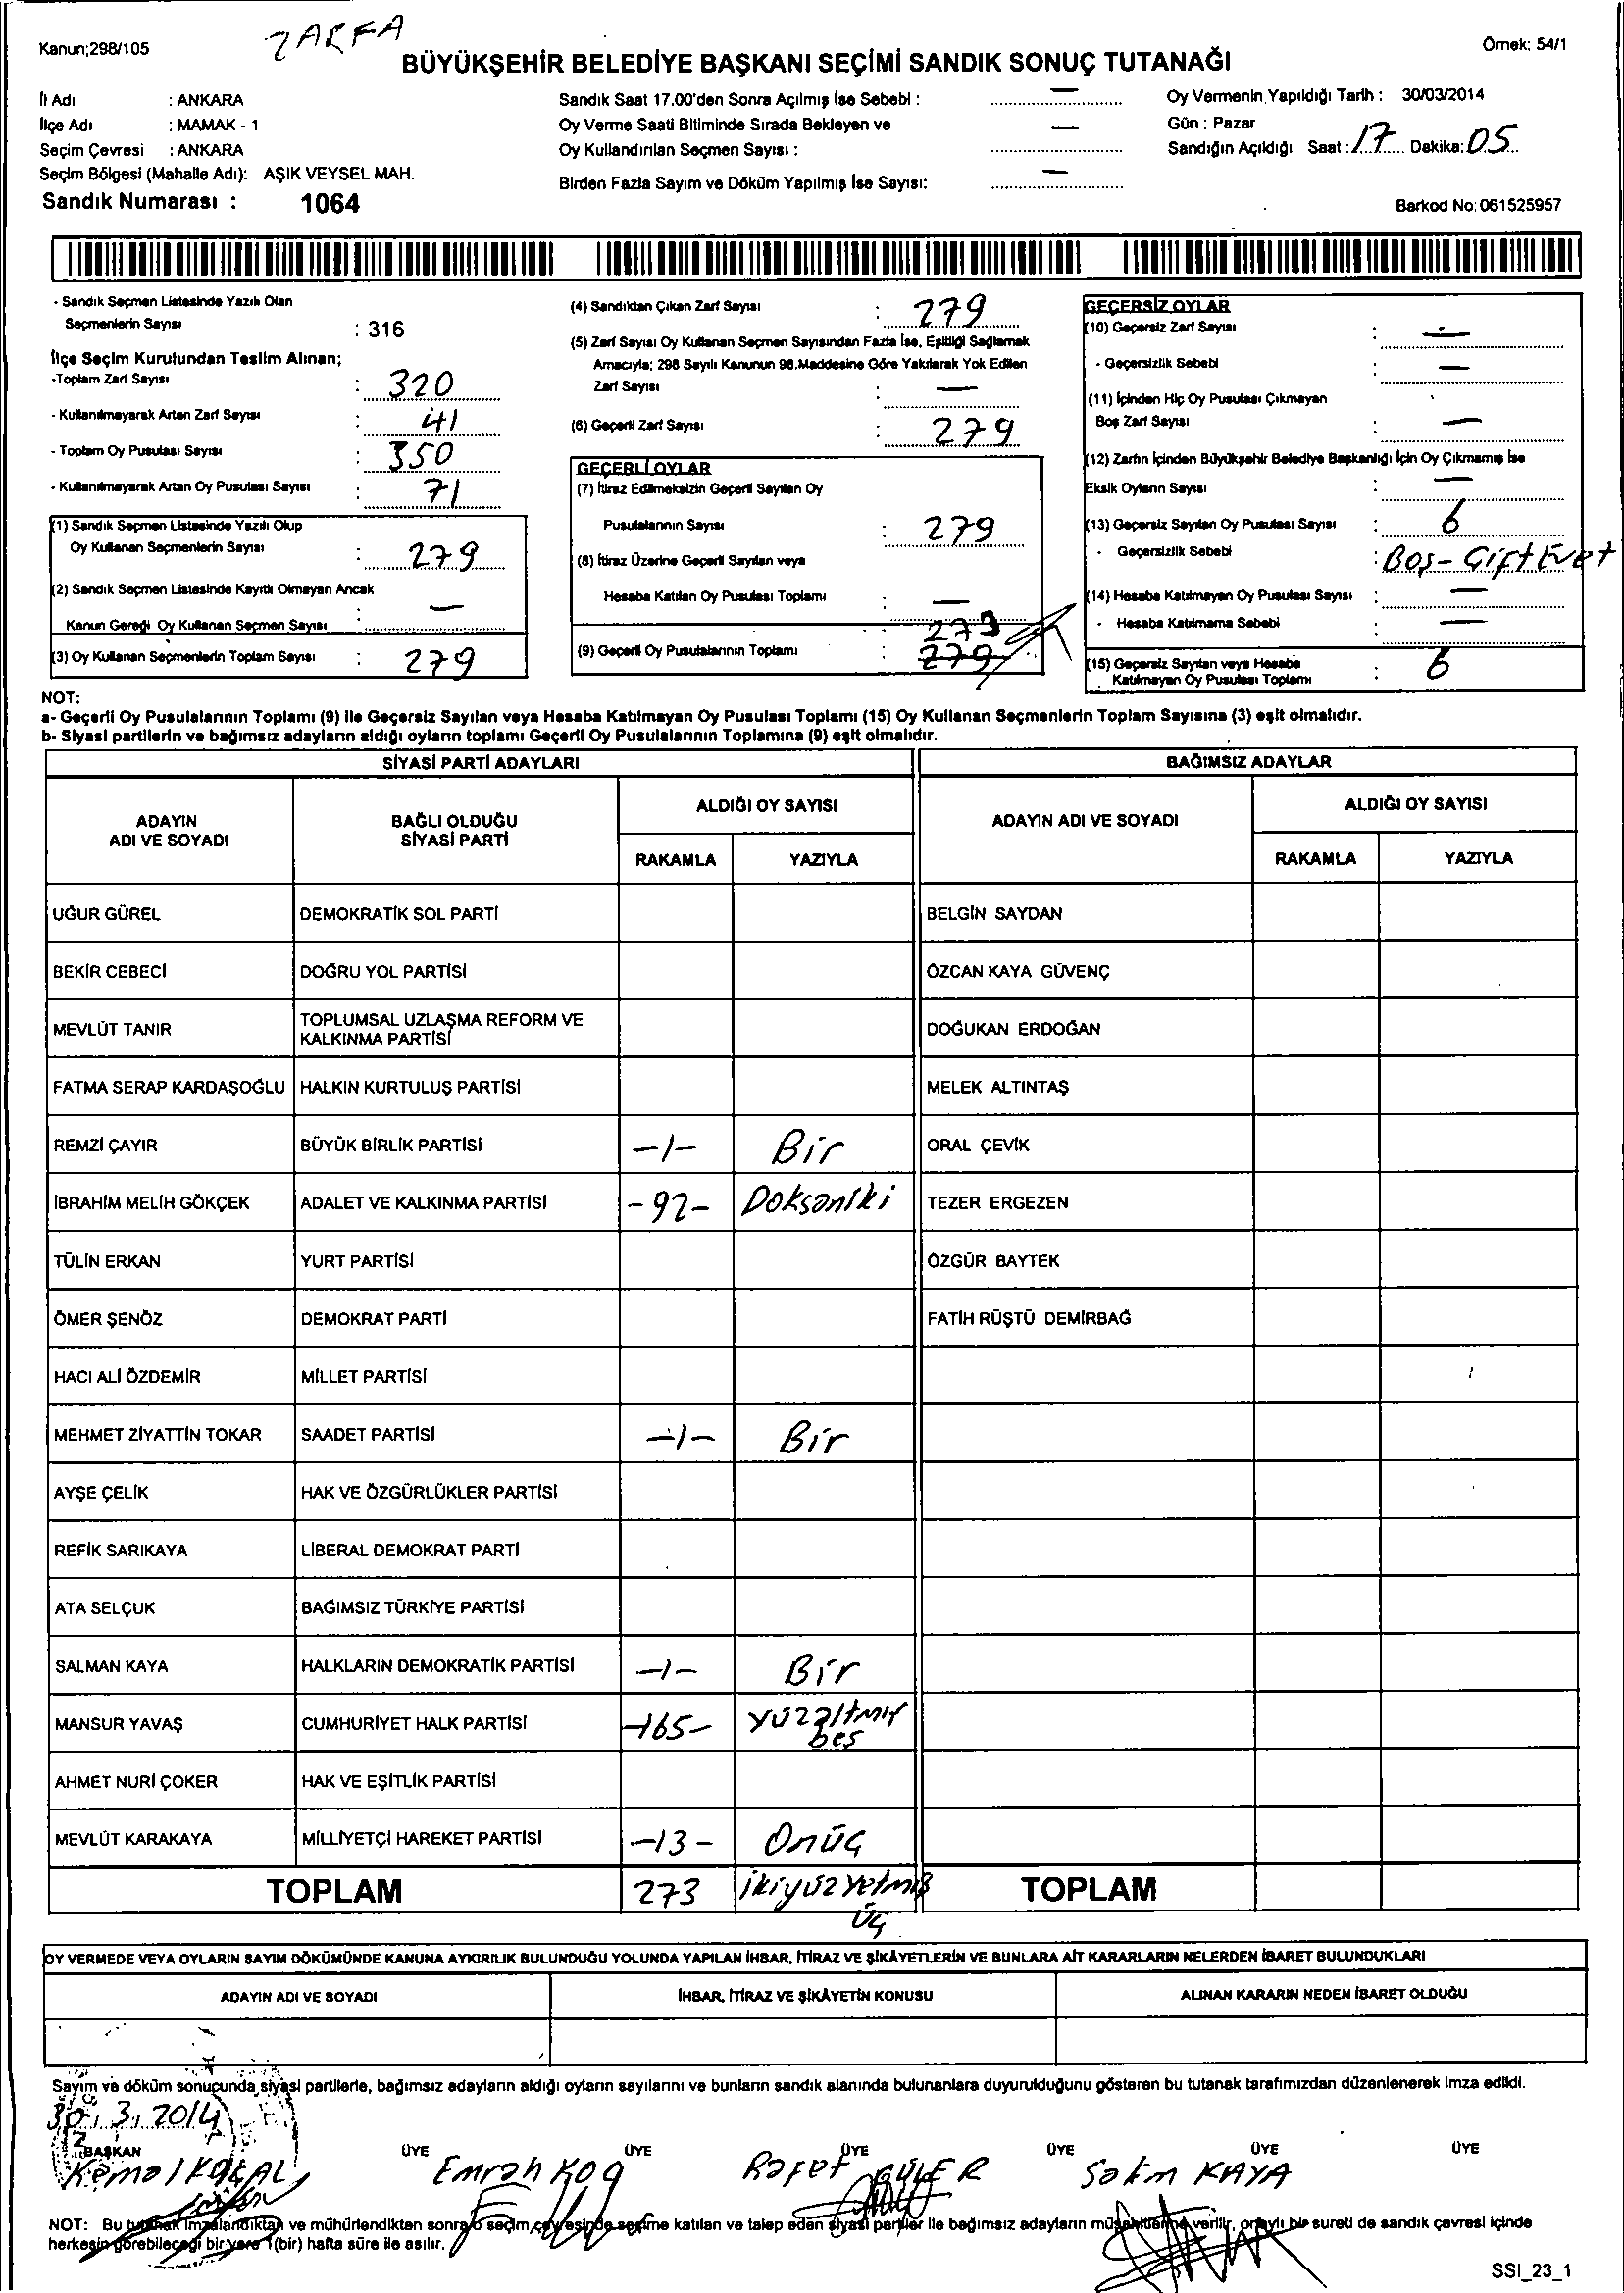 Kanun;298/105
ZARFA
Örnek: 54/1
BÜYÜKŞEHİR BELEDİYE BAŞKANI SEÇİMİ SANDIK SONUÇ TUTANAĞI
İl Adı : ANKARA
İlçe Adı : MAMAK - 1
Seçim Çevresi : ANKARA
Seçim Bölgesi (Mahalle Adı): AŞIK VEYSEL MAH.
Sandık Numarası : 1064
Sandık Saat 17.00'den Sonra Açılmış İse Sebebi : —
Oy Verme Saati Bitiminde Sırada Bekleyen ve
Oy Kullandırılan Seçmen Sayısı : —
Birden Fazla Sayım ve Döküm Yapılmış İse Sayısı: —
Oy Vermenin Yapıldığı Tarih : 30/03/2014
Gün : Pazar
Sandığın Açıldığı Saat : 17 Dakika: 05
Barkod No: 061525957
- Sandık Seçmen Listesinde Yazılı Olan
Seçmenlerin Sayısı : 316
İlçe Seçim Kurulundan Teslim Alınan;
-Toplam Zarf Sayısı : 320
- Kullanılmayarak Artan Zarf Sayısı : 41
- Toplam Oy Pusulası Sayısı : 350
- Kullanılmayarak Artan Oy Pusulası Sayısı : 71
(1) Sandık Seçmen Listesinde Yazılı Olup
Oy Kullanan Seçmenlerin Sayısı : 279
(2) Sandık Seçmen Listesinde Kayıtlı Olmayan Ancak
Kanun Gereği Oy Kullanan Seçmen Sayısı : —
(3) Oy Kullanan Seçmenlerin Toplam Sayısı : 279
(4) Sandıktan Çıkan Zarf Sayısı : 279
(5) Zarf Sayısı Oy Kullanan Seçmen Sayısından Fazla İse, Eşitliği Sağlamak
Amacıyla; 298 Sayılı Kanunun 98.Maddesine Göre Yakılarak Yok Edilen
Zarf Sayısı : —
(6) Geçerli Zarf Sayısı : 279
GEÇERLİ OYLAR
(7) İtiraz Edilmeksizin Geçerli Sayılan Oy
Pusulalarının Sayısı : 279
(8) İtiraz Üzerine Geçerli Sayılan veya
Hesaba Katılan Oy Pusulası Toplamı : —
273
(9) Geçerli Oy Pusulalarının Toplamı : 279
GEÇERSİZ OYLAR
(10) Geçersiz Zarf Sayısı : —
- Geçersizlik Sebebi : —
(11) İçinden Hiç Oy Pusulası Çıkmayan
Boş Zarf Sayısı : —
(12) Zarfın İçinden Büyükşehir Belediye Başkanlığı İçin Oy Çıkmamış İse
Eksik Oyların Sayısı : —
(13) Geçersiz Sayılan Oy Pusulası Sayısı : 6
- Geçersizlik Sebebi : Boş - Çift Evet
(14) Hesaba Katılmayan Oy Pusulası Sayısı : —
- Hesaba Katılmama Sebebi : —
(15) Geçersiz Sayılan veya Hesaba
Katılmayan Oy Pusulası Toplamı : 6
NOT:
a- Geçerli Oy Pusulalarının Toplamı (9) ile Geçersiz Sayılan veya Hesaba Katılmayan Oy Pusulası Toplamı (15) Oy Kullanan Seçmenlerin Toplam Sayısına (3) eşit olmalıdır.
b- Siyasi partilerin ve bağımsız adayların aldığı oyların toplamı Geçerli Oy Pusulalarının Toplamına (9) eşit olmalıdır.
SİYASİ PARTİ ADAYLARI BAĞIMSIZ ADAYLAR
ADAYIN ADI VE SOYADI BAĞLI OLDUĞU SİYASİ PARTİ ALDIĞI OY SAYISI ADAYIN ADI VE SOYADI ALDIĞI OY SAYISI
RAKAMLA YAZIYLA RAKAMLA YAZIYLA
UĞUR GÜREL DEMOKRATİK SOL PARTİ BELGİN SAYDAN
BEKİR CEBECİ DOĞRU YOL PARTİSİ ÖZCAN KAYA GÜVENÇ
MEVLÜT TANIR TOPLUMSAL UZLAŞMA REFORM VE KALKINMA PARTİSİ DOĞUKAN ERDOĞAN
FATMA SERAP KARDAŞOĞLU HALKIN KURTULUŞ PARTİSİ MELEK ALTINTAŞ
REMZİ ÇAYIR BÜYÜK BİRLİK PARTİSİ -1- Bir ORAL ÇEVİK
İBRAHİM MELİH GÖKÇEK ADALET VE KALKINMA PARTİSİ -92- Doksaniki TEZER ERGEZEN
TÜLİN ERKAN YURT PARTİSİ ÖZGÜR BAYTEK
ÖMER ŞENÖZ DEMOKRAT PARTİ FATİH RÜŞTÜ DEMİRBAĞ
HACI ALİ ÖZDEMİR MİLLET PARTİSİ
MEHMET ZİYATTİN TOKAR SAADET PARTİSİ -1- Bir
AYŞE ÇELİK HAK VE ÖZGÜRLÜKLER PARTİSİ
REFİK SARIKAYA LİBERAL DEMOKRAT PARTİ
ATA SELÇUK BAĞIMSIZ TÜRKİYE PARTİSİ
SALMAN KAYA HALKLARIN DEMOKRATİK PARTİSİ -1- Bir
MANSUR YAVAŞ CUMHURİYET HALK PARTİSİ -165- Yüzaltmış beş
AHMET NURİ ÇOKER HAK VE EŞİTLİK PARTİSİ
MEVLÜT KARAKAYA MİLLİYETÇİ HAREKET PARTİSİ -13- Onüç
TOPLAM 273 ikiyüzyetmiş üç TOPLAM
OY VERMEDE VEYA OYLARIN SAYIM DÖKÜMÜNDE KANUNA AYKIRILIK BULUNDUĞU YOLUNDA YAPILAN İHBAR, İTİRAZ VE ŞİKÂYETLERİN VE BUNLARA AİT KARARLARIN NELERDEN İBARET BULUNDUKLARI
ADAYIN ADI VE SOYADI İHBAR, İTİRAZ VE ŞİKÂYETİN KONUSU ALINAN KARARIN NEDEN İBARET OLDUĞU
Sayım ve döküm sonucunda siyasi partilerle, bağımsız adayların aldığı oyların sayılarını ve bunların sandık alanında bulunanlara duyurulduğunu gösteren bu tutanak tarafımızdan düzenlenerek imza edildi.
30.3.2014
BAŞKAN ÜYE ÜYE ÜYE ÜYE ÜYE ÜYE
Kemal KOÇAL Emrah KOÇ Rafet GÜLER Salim KAYA
NOT: Bu tutanak imzalandıktan ve mühürlendikten sonra o seçim çevresinde seçime katılan ve talep eden siyasi partiler ile bağımsız adayların müşahitlerine verilir, onaylı bir sureti de sandık çevresi içinde
herkesin görebileceği bir yere 1(bir) hafta süre ile asılır.
SSI_23_1